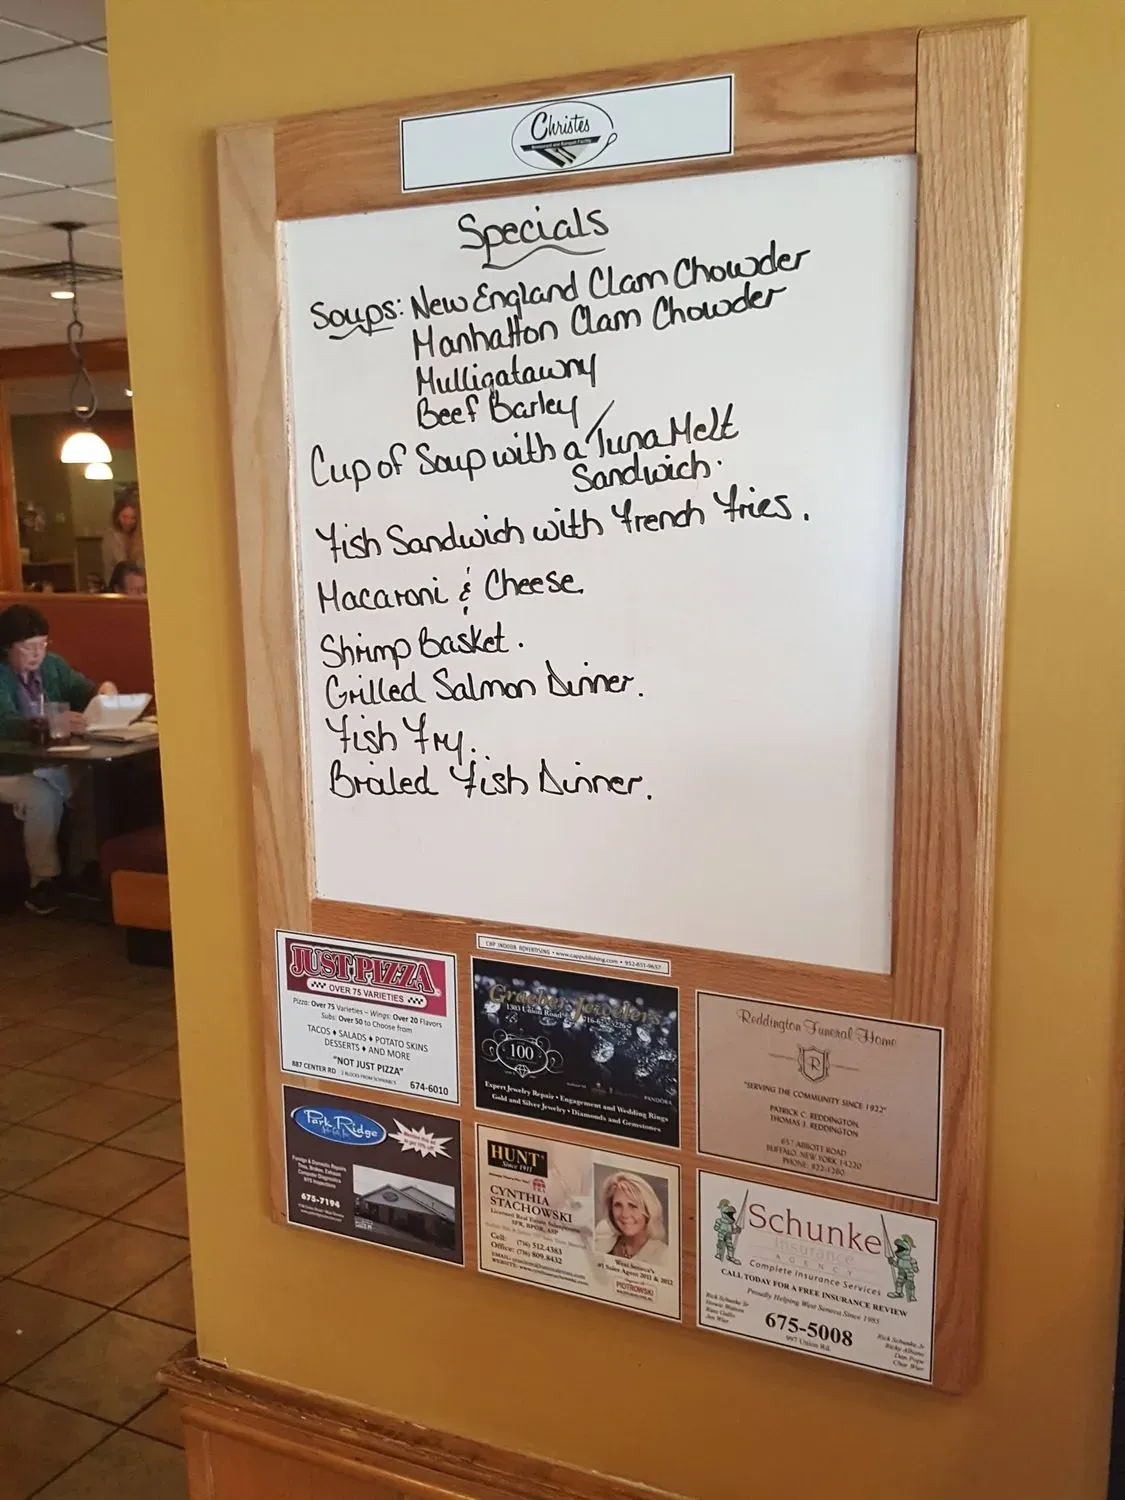 Christes
Specials
Soups: New England Clam Chowder
Manhatton Clam Chowder
Mulligatawny
Beef Barley
Cup of Soup with a Tuna Melt
Sandwich.
Fish Sandwich with French Fries.
Macaroni & Cheese.
Shrimp Basket.
Grilled Salmon Dinner.
Fish Fry.
Broiled Fish Dinner.
CAP INDOOR ADVERTISING • www.cappublishing.com • 952-851-9637
JUST PIZZA
OVER 75 VARIETIES
Pizza: Over 75 Varieties – Wings: Over 20 Flavors
Subs: Over 50 to Choose from
TACOS ♦ SALADS ♦ POTATO SKINS
DESSERTS ♦ AND MORE
"NOT JUST PIZZA"
887 CENTER RD 2 BLOCKS FROM SCHWABL'S 674-6010
Graeber Jewelers
1303 Union Road
100
PANDORA
Expert Jewelry Repair • Engagement and Wedding Rings
Gold and Silver Jewelry • Diamonds and Gemstones
Reddington Funeral Home
R
"SERVING THE COMMUNITY SINCE 1922"
PATRICK C. REDDINGTON
THOMAS J. REDDINGTON
657 ABBOTT ROAD
BUFFALO, NEW YORK 14220
PHONE: 822-1260
Park Ridge
Foreign & Domestic Repairs
Tires, Brakes, Exhaust
Computer Diagnostics
NYS Inspections
675-7194
HUNT
Since 1911
CYNTHIA
STACHOWSKI
Licensed Real Estate Salesperson
Cell: (716) 512.4383
Office: (716) 809.8432
West Seneca's
#1 Sales Agent 2011 & 2012
PIOTROWSKI
Schunke
Insurance
AGENCY
Complete Insurance Services
CALL TODAY FOR A FREE INSURANCE REVIEW
Proudly Helping West Seneca Since 1985
675-5008
997 Union Rd.
Rick Schunke Sr
Howie Watson
Russ Gullo
Jen Wier
Rick Schunke, Jr
Ricky Albano
Dan Pope
Char Wier